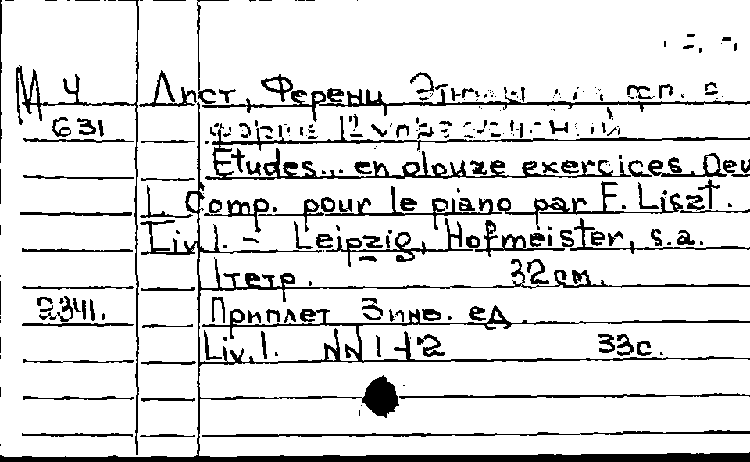 М 4 Лист, Ференц Этюды для фп. в
631 форме 12 упражнений
Etudes... en douze exercices. Oeu
1. Comp. pour le piano par F. Liszt.
Liv.1. – Leipzig, Hofmeister, s.a.
1 тетр. 32 см.
2341. Приплет 3 инв. ед.
Liv.1. NN 1-12 33 с.